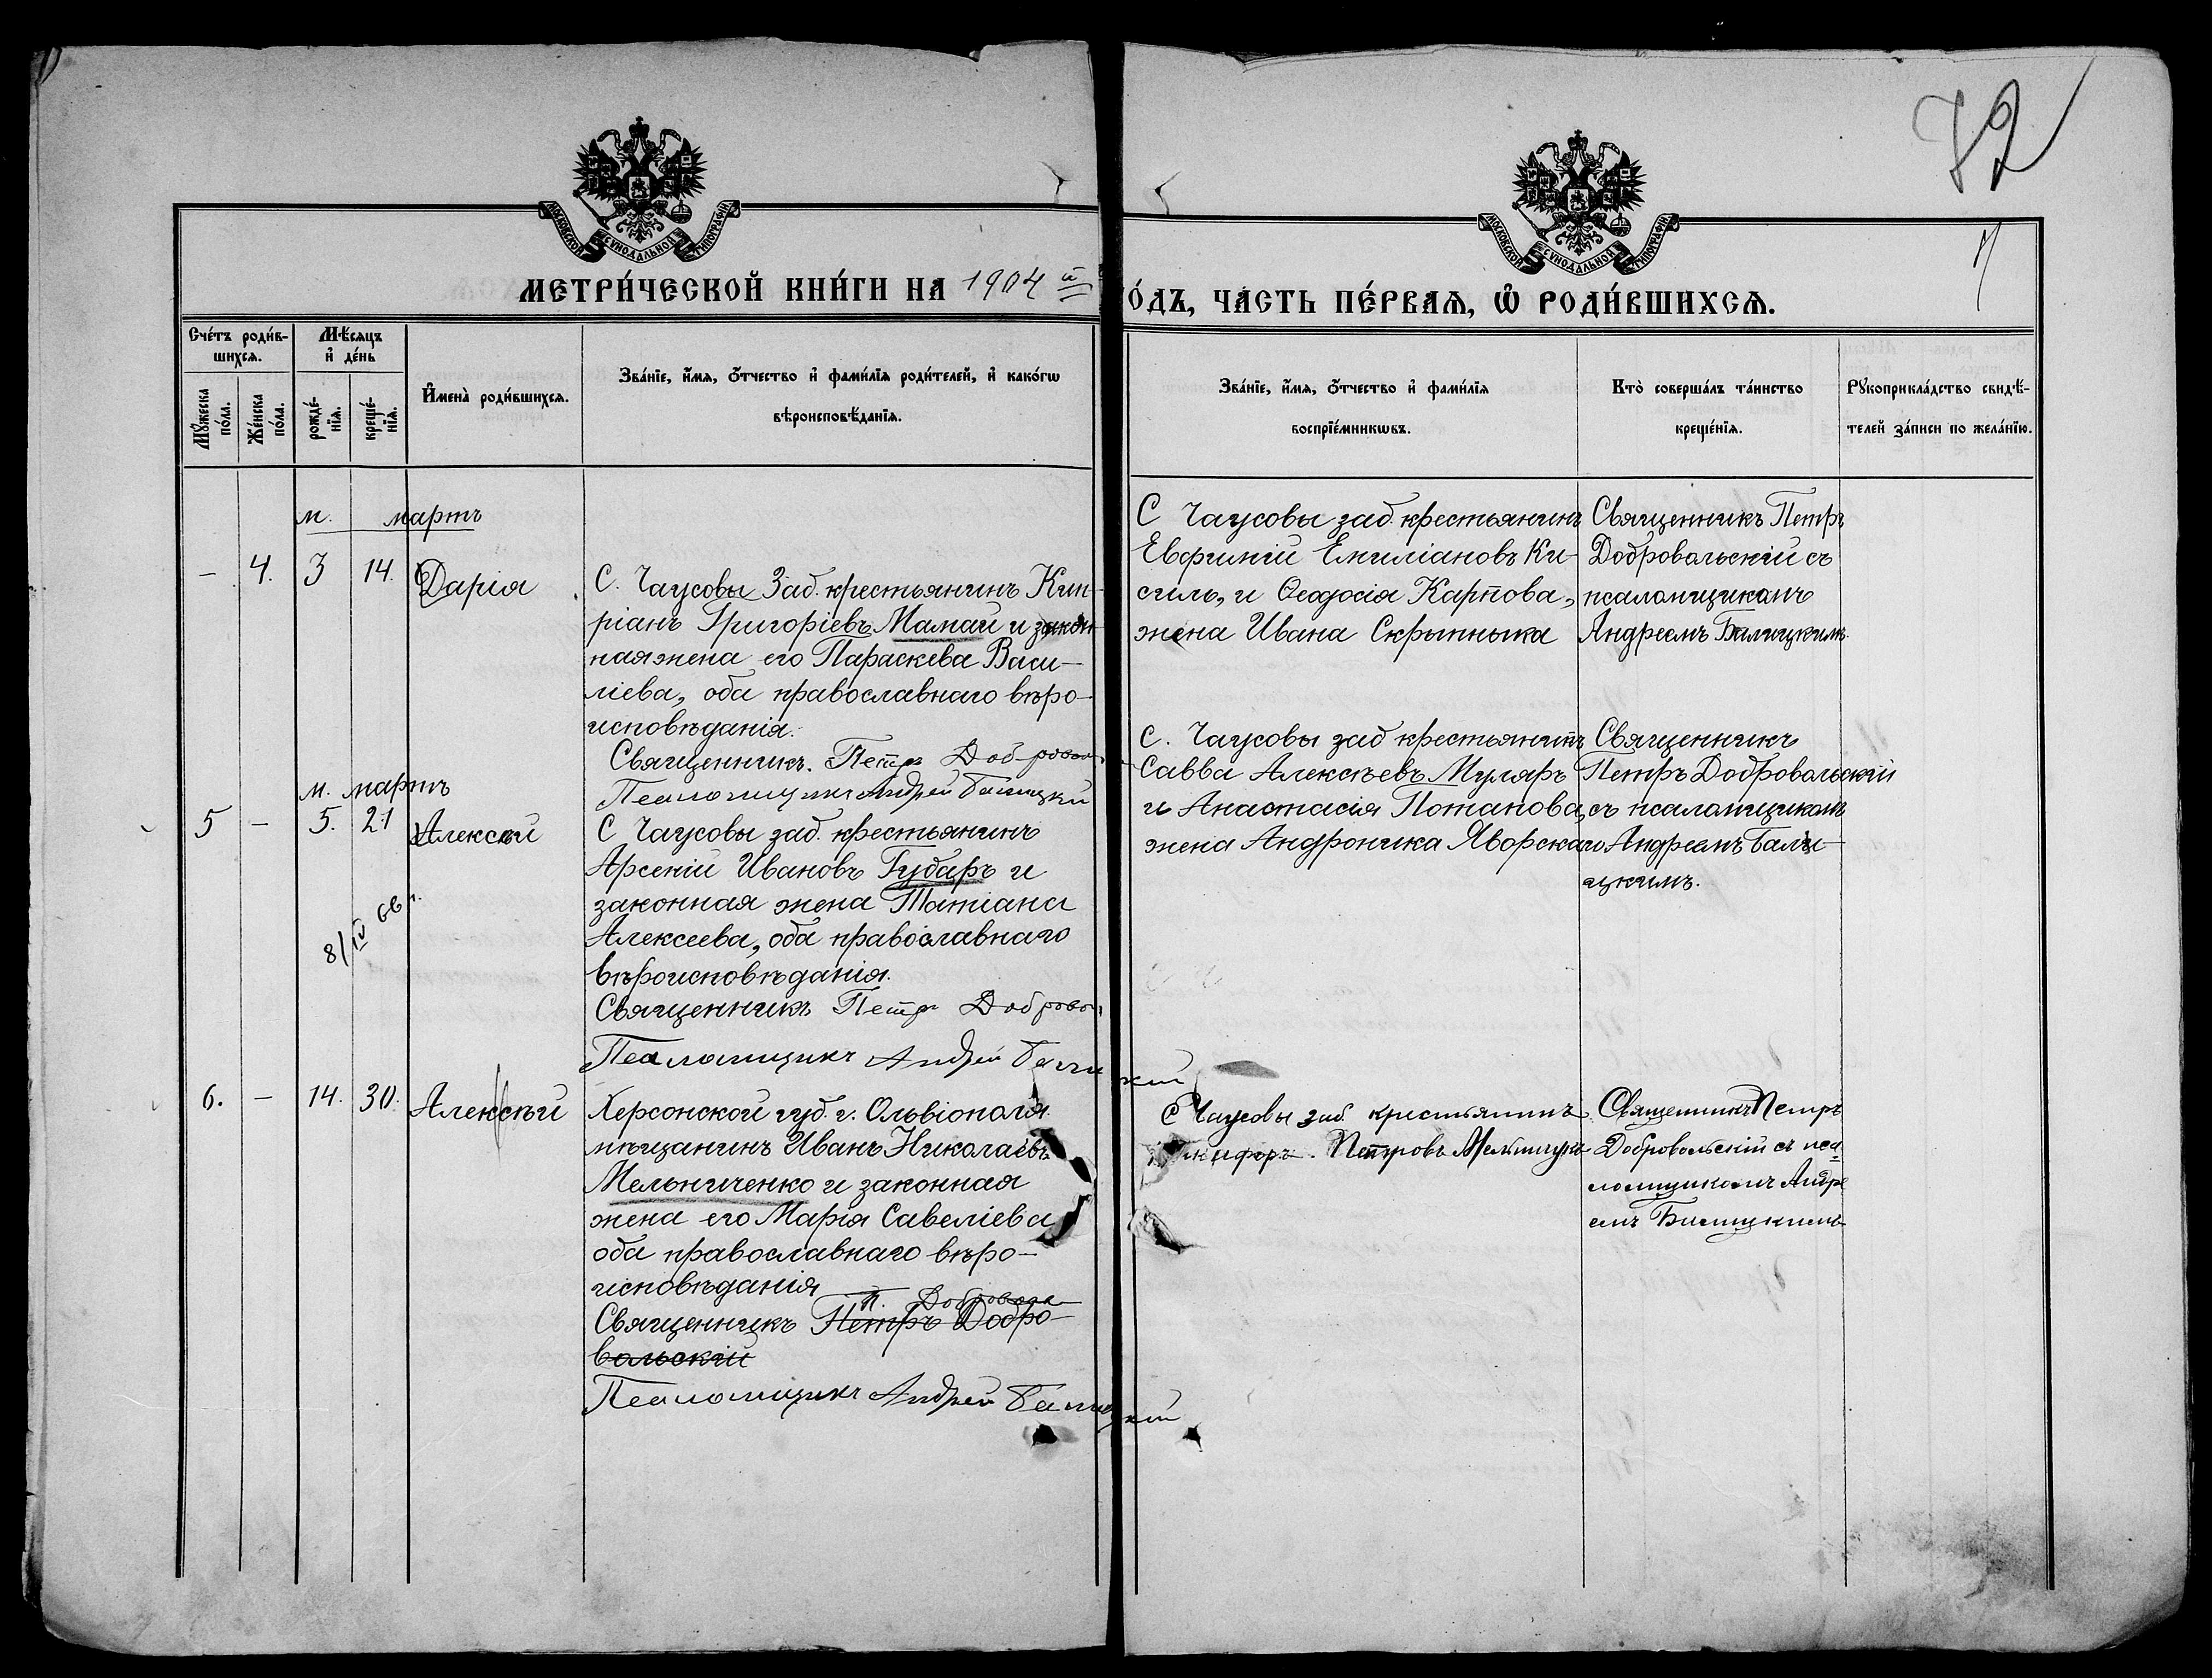 72
7
МОСКОВСКОЙ СѴНОДАЛЬНОЙ ТИПОГРАФІИ
МОСКОВСКОЙ СѴНОДАЛЬНОЙ ТИПОГРАФІИ
МЕТРИ́ЧЕСКОЙ КНИ́ГИ НА 1904 й
О́ДЪ, ЧА́СТЬ ПЕ́РВАЯ, Ѡ РОДИ́ВШИХСЯ.
Сче́тъ роди́в-
шихся.
Му́жеска
по́ла.
Же́нска
по́ла.
Мѣ́сяцъ
и҆ де́нь
рожде́-
нїя.
креще́-
нїя.
И҆мена̀ роди́вшихся.
Зва́нїе, и҆́мя, ѻ҆́тчество и҆ фами́лїя роди́телей, и҆ како́гѡ
вѣроисповѣ́данїя.
Зва́нїе, и҆́мя, ѻ҆́тчество и҆ фами́лїя
воспрїе́мникѡвъ.
Кто̀ соверша́лъ та́инство
креще́нїя.
Рꙋкоприкла́дство свидѣ́-
телей за́писи по жела́нїю.
м. мартъ
- 4. 3 14. Дарія
С. Чаусовы Заб. крестьянинъ Кип-
ріанъ Григоріевъ Мамай и закон
ная жена его Параскева Васи-
ліева, оба православнаго вѣро-
исповѣданія.
Священникъ. Петръ Добровол
Псаломщикъ Андрей Балицкій
С Чаусовы заб. крестьянинъ
Евфимій Емиліановъ Ки-
силь, и Ѳеодосія Карпова,
жена Ивана Скрыпныка
Священникъ Петръ
Добровольскій съ
псаломщикомъ
Андреемъ Балицкимъ.
м. мартъ
5 - 5. 21 Алексѣй
8/IV 66 г.
С Чаусовы заб. крестьянинъ
Арсеній Ивановъ Губарь и
законная жена Татіана
Алексеева, оба православнаго
вѣроисповѣданія.
Священникъ Петръ Доброво
Псаломщикъ Андрей Балицкій
С. Чаусовы заб крестьянинъ
Савва Алексѣевъ Муляръ
и Анастасія Потапова,
жена Андроника Яворскаго
Священникъ
Петръ Добровольскій
съ псаломщикомъ
Андреемъ Бали-
цкимъ.
6. - 14. 30. Алексѣй
Херсонской губ. г. Ольвіополя
мѣщанинъ Иванъ Николаевъ
Мельниченко и законная
жена его Марія Савеліева
оба православнаго вѣро-
исповѣданія
П. Доброволь
Священникъ Петръ Добро-
вольскій
Псаломщикъ Андрей Балицкій
С Чаусовы заб. крестьянинъ
Петровъ Мельничукъ
Священникъ Петръ
Добровольскій съ пса=
ломщикомъ Андре
емъ Балицкимъ